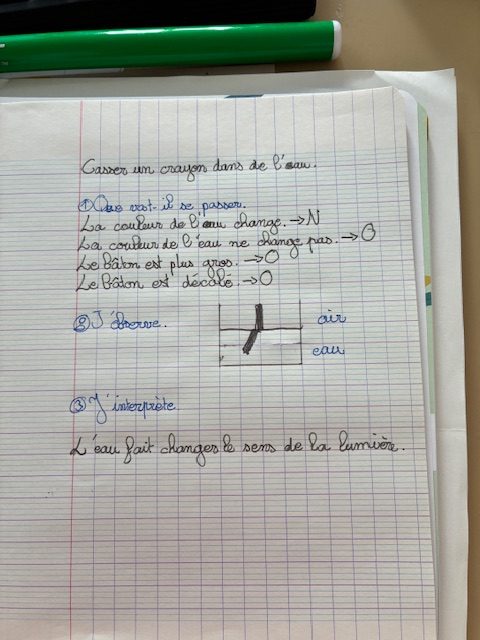 Casser un crayon dans de l'eau.
① Que vat-il se passer.
La couleur de l'eau change. → N
La couleur de l'eau ne change pas. → O
Le bâton est plus gros. → O
Le bâton est décalé. → O
② J'observe.
air
eau
③ J'interprète
L'eau fait changer le sens de la lumière.